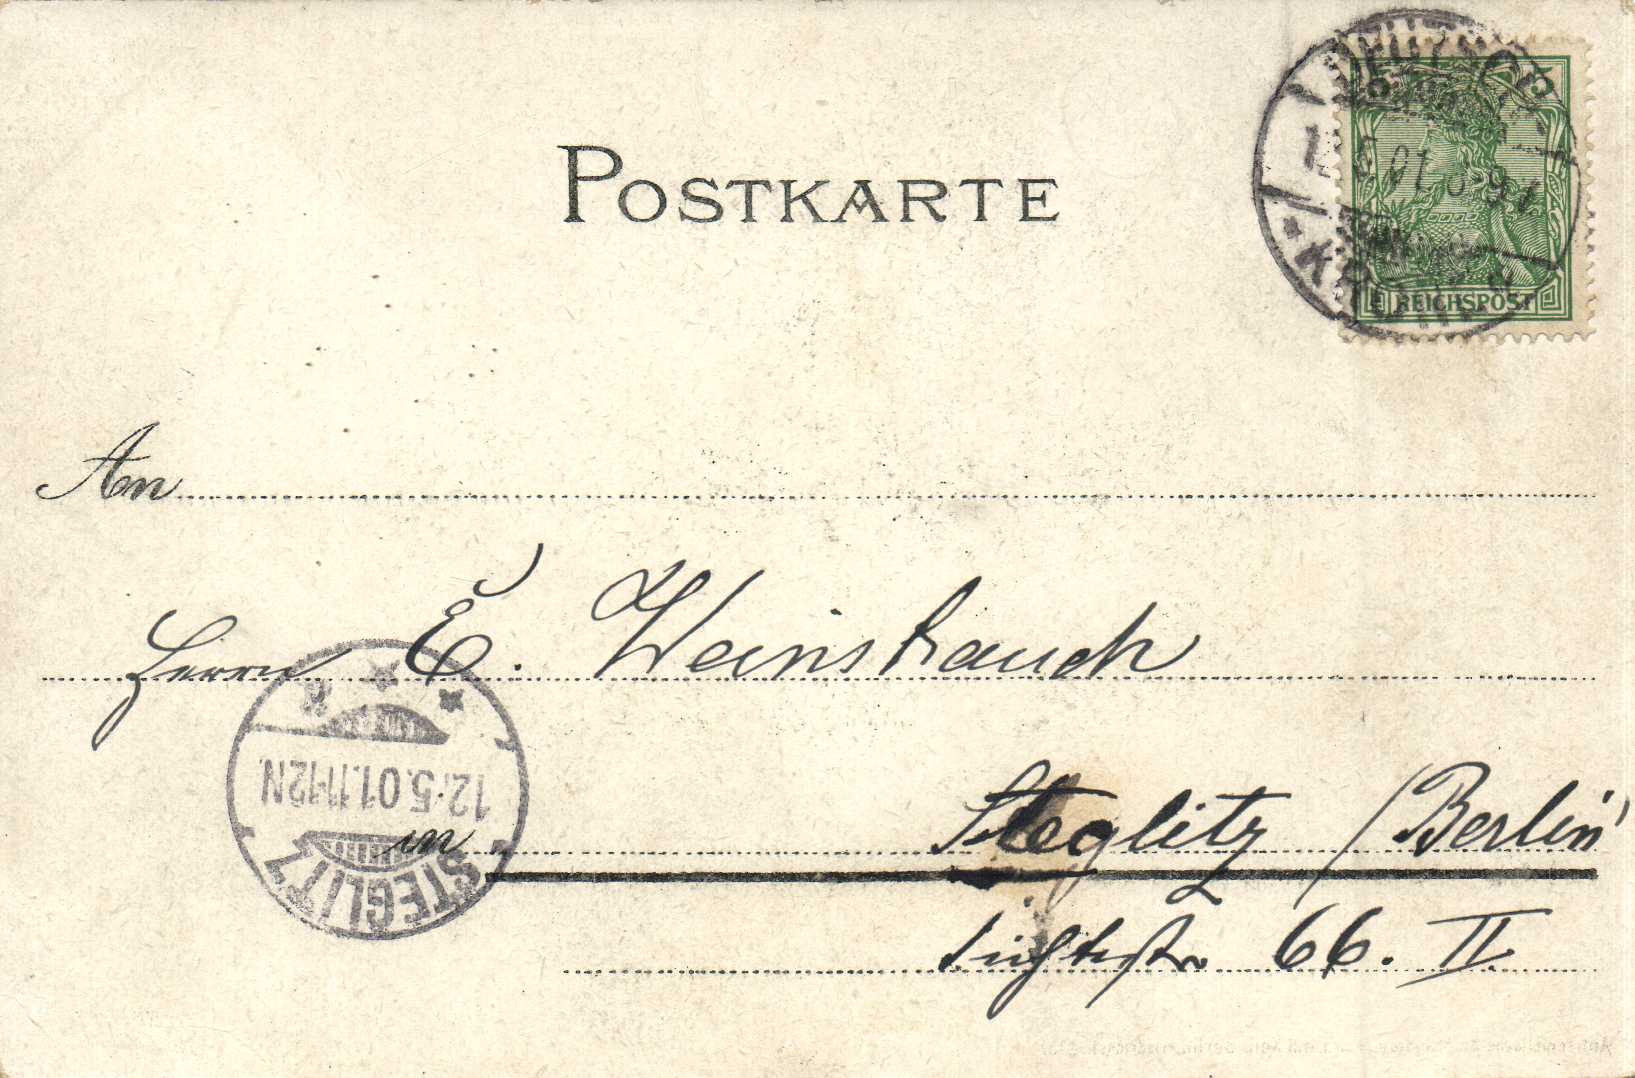 POSTKARTE
REICHSPOST
An
Herrn E. Weinstrauch
12.5.01.11-12N.
STEGLITZ
in Steglitz / Berlin
66. II